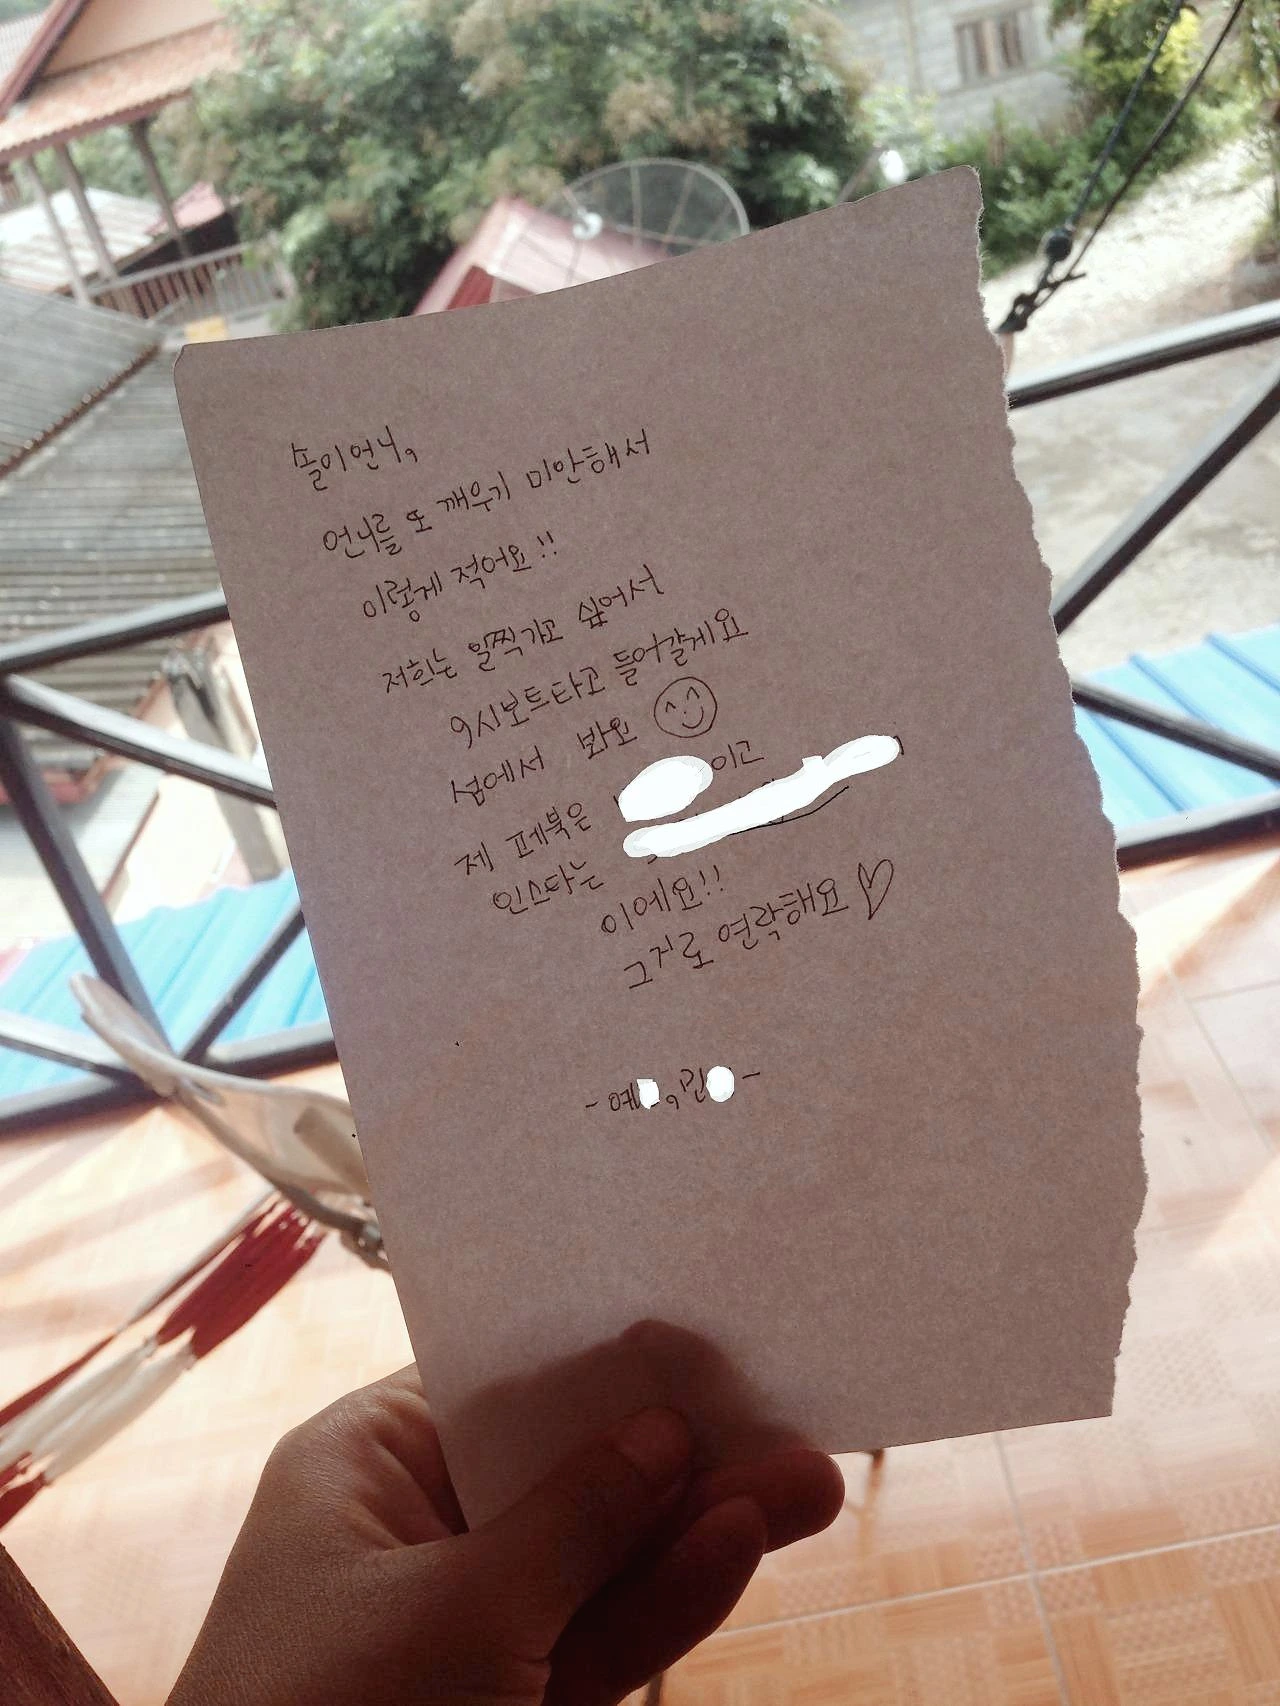 솔이언니,
언니를 또 깨우기 미안해서
이렇게 적어요!!
저희는 일찍가고 싶어서
9시보트타고 들어갈게요
섬에서 봐요
제 페북은 이고
인스타는
이에요!!
그거로 연락해요♡
- 예 , 민 -